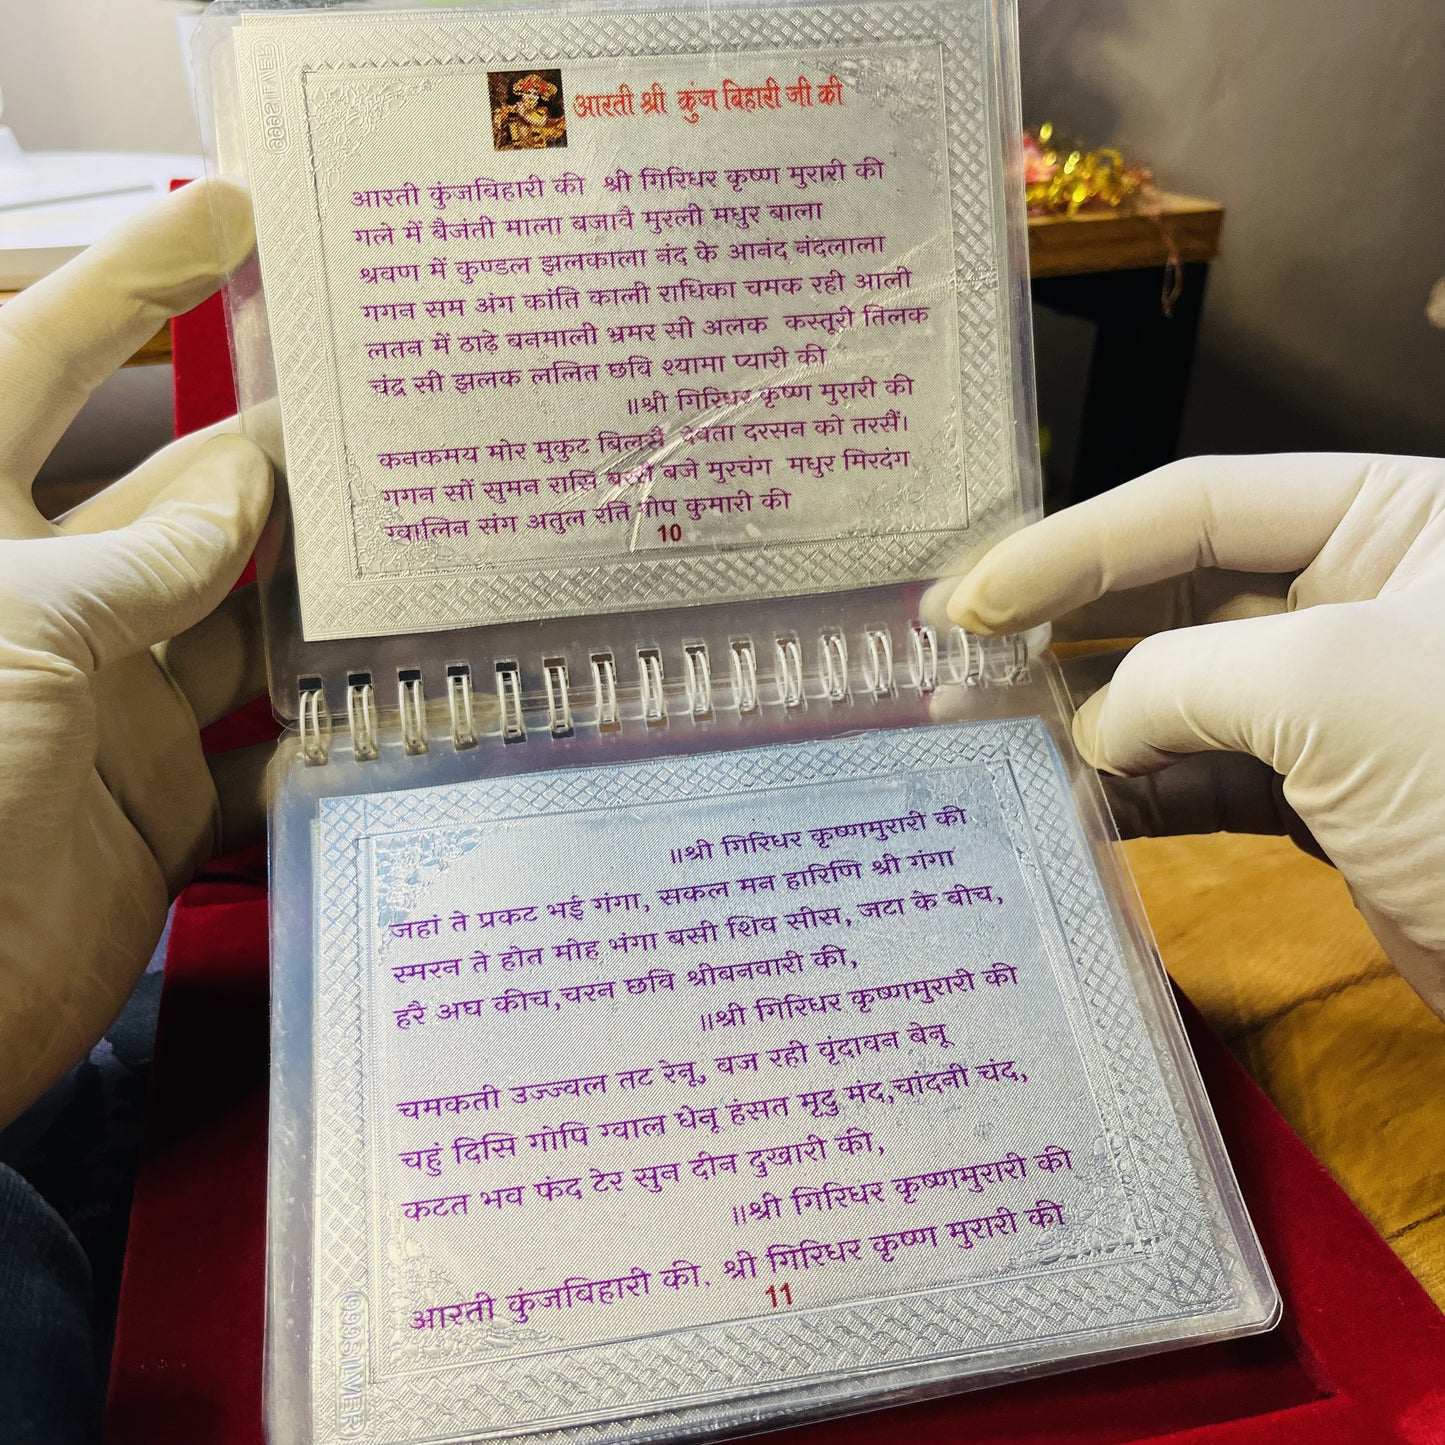 999 SILVER
आरती श्री कुंज बिहारी जी की
आरती कुंजबिहारी की श्री गिरिधर कृष्ण मुरारी की
गले में बैजंती माला बजावै मुरली मधुर बाला
श्रवण में कुण्डल झलकाला नंद के आनंद नंदलाला
गगन सम अंग कांति काली राधिका चमक रही आली
लतन में ठाढ़े बनमाली भ्रमर सी अलक कस्तूरी तिलक
चंद्र सी झलक ललित छवि श्यामा प्यारी की
॥श्री गिरिधर कृष्ण मुरारी की
कनकमय मोर मुकुट बिलसै देवता दरसन को तरसैं।
गगन सों सुमन रासि बरसै बजे मुरचंग मधुर मिरदंग
ग्वालिन संग अतुल रति गोप कुमारी की
10
॥श्री गिरिधर कृष्णमुरारी की
जहां ते प्रकट भई गंगा, सकल मन हारिणि श्री गंगा
स्मरन ते होत मोह भंगा बसी शिव सीस, जटा के बीच,
हरै अघ कीच,चरन छवि श्रीबनवारी की,
॥श्री गिरिधर कृष्णमुरारी की
चमकती उज्ज्वल तट रेनू, बज रही वृंदावन बेनू
चहुं दिसि गोपि ग्वाल धेनू हंसत मृदु मंद,चांदनी चंद,
कटत भव फंद टेर सुन दीन दुखारी की,
॥श्री गिरिधर कृष्णमुरारी की
आरती कुंजबिहारी की. श्री गिरिधर कृष्ण मुरारी की
11
999 SILVER